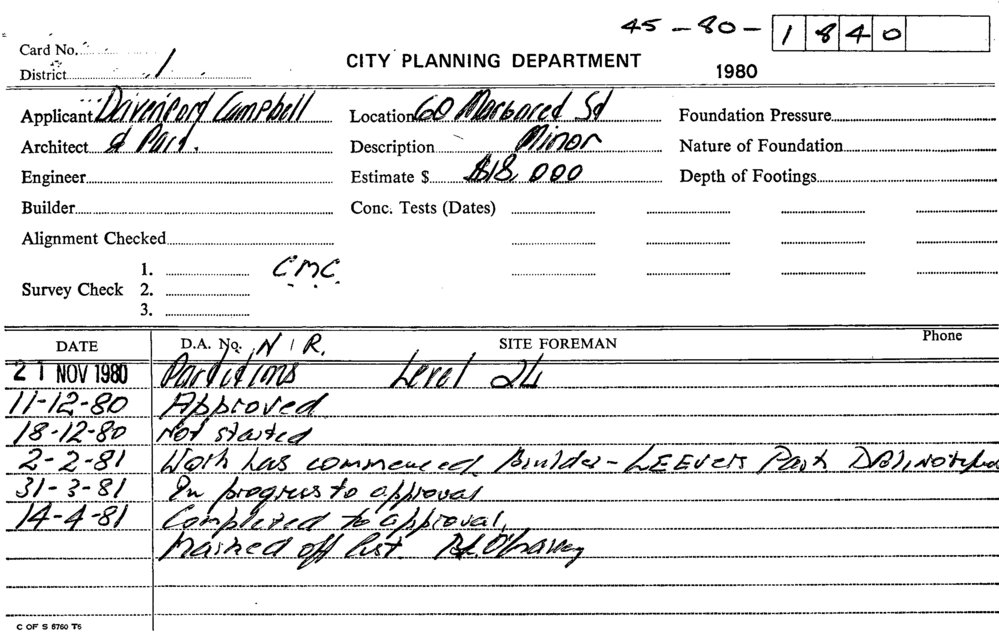 45-80-1840
Card No.
District 1
CITY PLANNING DEPARTMENT
1980
Applicant Davenport Campbell
Location 60 Margaret St
Foundation Pressure
Architect & Part.
Description Minor
Nature of Foundation
Engineer
Estimate $ $18,000
Depth of Footings
Builder
Conc. Tests (Dates)
Alignment Checked
Survey Check 1. 2. 3.
C.M.C.
DATE D.A. No. N/R. SITE FOREMAN Phone
21 NOV 1980 Partitions Level 24
11-12-80 Approved
18-12-80 Not started
2-2-81 Work has commenced, Builder - Notified
31-3-81 In progress to approval
14-4-81 Completed to approval,
Marked off list.
C OF S 6760 T6